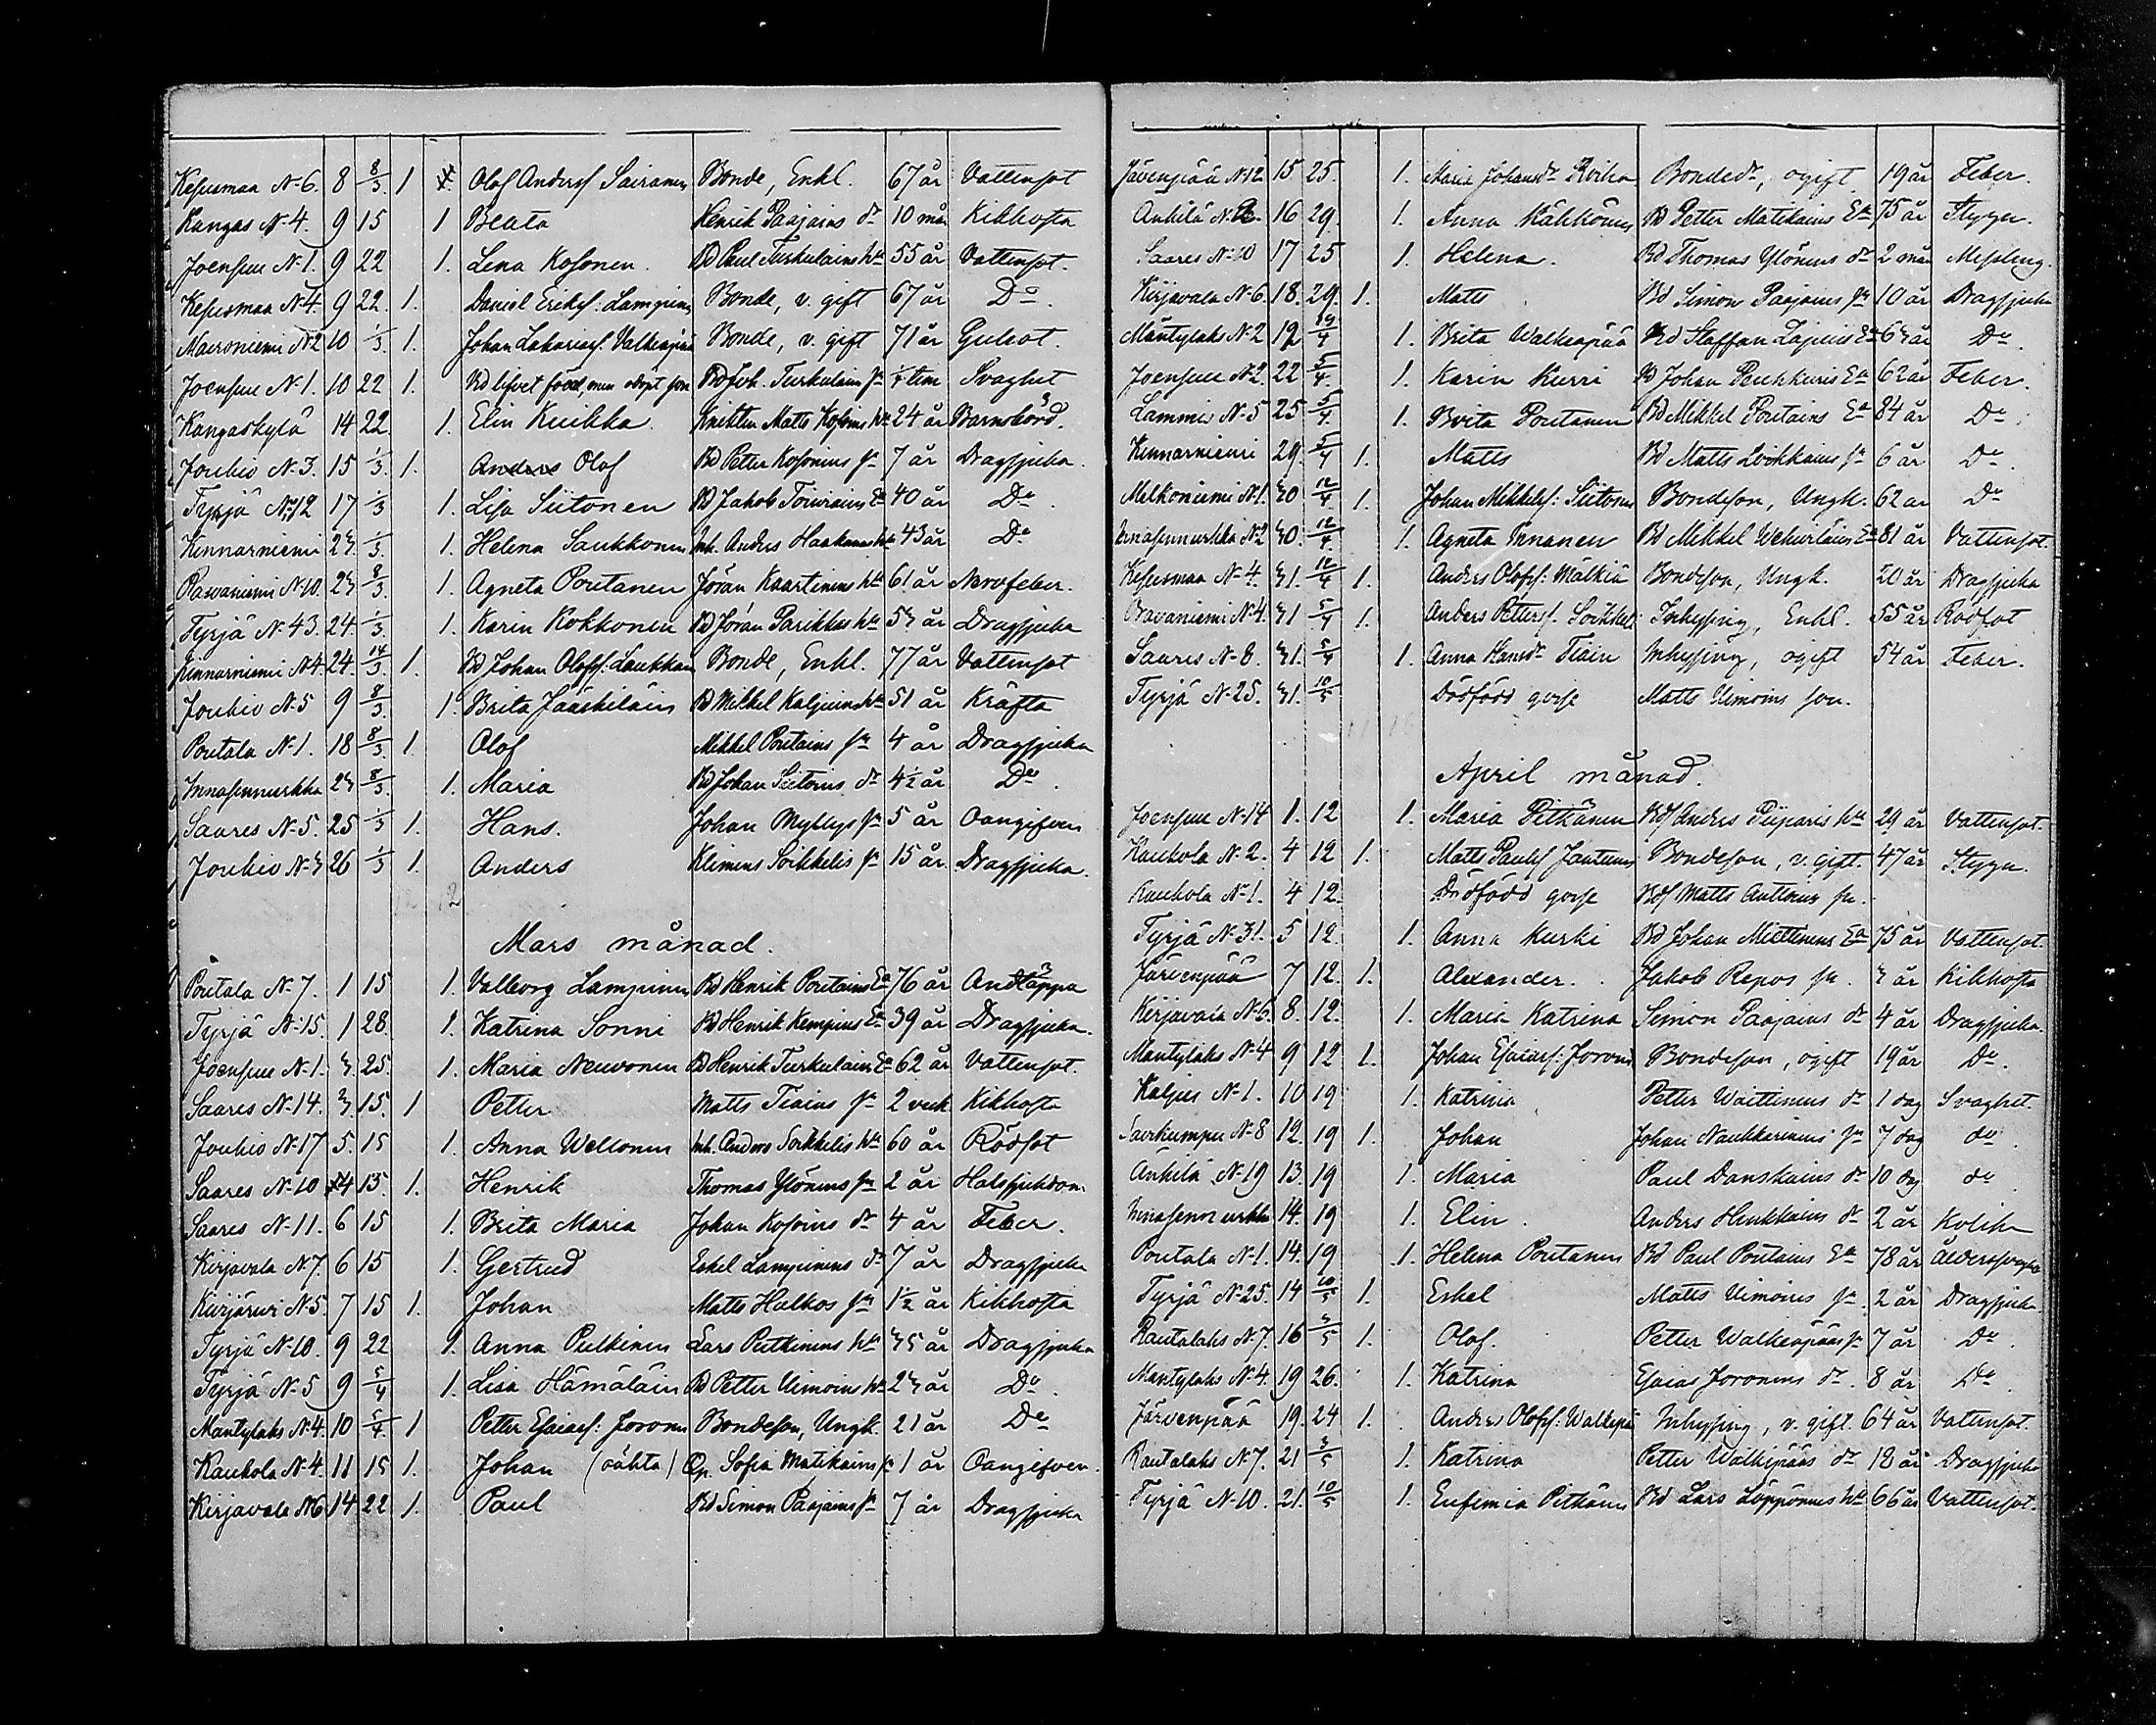 Kesusmaa N-6. 8 8/3. 1 Olof Anderss Sairanen Bonde, Enkl. 67 år Vattensot
Kangas N-4. 9 15 1 Beata Henrik Paajains dr 10 mån Kikhosta
Joensuu N-1. 9 22 1. Lena Kosonen. Bd Paul Turkulains hu 55 år Vattensot.
Kesusmaa N-4. 9 22 1. Daniel Erikss. Lampinen Bonde, v. gift 67 år Do
N2 10 1/3. 1. Johan Valkeapää Bonde, v. gift 71 år Gulsot.
Joensuu N-1. 10 22 1. Bd Joh. Turkulains sn tim Svaghet
Kangaskylä 14 22. 1. Elin Kuikka Knikten Matts Kosoins hu 24 år Barnsbörd.
Jouhio N-3. 15 1/3. 1. Olof Bd Petter Kosonius sn 7 år Dragsjuka.
Tyrjä N-12 17 1/3 1. Lisa Siitonen Bd Jakob Ea 40 år Do
Kinnarniemi 23. 1/3. 1. Helena Saukkonen Inh. Anders hu 43 år Do
Rasvaniemi N-10. 23 8/3. 1. Agneta Poutanen Jöran Kaartinens hu 61 år Nervfeber.
Tyrjä N-43. 24. 1/3. 1. Karin Kokkonen Bd Jöran Parikkas hu 53 år Dragsjuka
Kinnarniemi N-4 24. 14/3. 1. Bd Johan Olofss. Laukkan Bonde, Enkl. 77 år Vattensot
Jouhio N-5 9 8/3. 1. Brita Jääskeläin Bd Mikkel Kaljuins hu 51 år Kräfta
Poutala N-1. 18 8/3. 1. Olof Mikkel Poutains sn 4 år Dragsjuka
Innasennurkka 23 8/3. 1. Maria Bd Johan Siitoins dr 4½ år Do.
Saares N-5. 25 1/3 1. Hans. Johan Myllys sn 5 år Oangifven
Jouhio N-3 26 1/3 1. Anders Klimens Soikkelis sn 15 år Dragsjuka.
Mars månad.
Poutala N-7. 1 15 1. Valborg Lampinen Bd Henrik Poutains Ea 76 år Andtäppa
Tyrjä N-15. 1 28. 1. Katrina Sonni Bd Henrik Kempius Ea 39 år Dragsjuka.
Joensuu N-1. 3. 25. 1. Maria Neuvonen Bd Henrik Turkulains Ea 62 år Vattensot.
Saares N-14. 3 15. 1 Petter Matts Tiains sn 2 veck Kikhosta
Jouhio N-17 5. 15 1. Anna Wellonen Inh. Anders Soikkelis hu 60 år Rödsot
Saares N-10 4 15. 1. Henrik Thomas Ylönens sn 2 år Halssjukdom
Saares N-11. 6 15 1. Brita Maria Johan Kosoins dr 4 år Feber.
Kirjavala N7. 6 15 1. Gertrud Eskel Lampinens dr 7 år Dragsjuka
Kivijärvi N-5. 7 15 1. Johan Matts Halkos sn 1½ år Kikhosta
Tyrjä N-10. 9 22 1. Anna Pulkinen Lars Putkinens hu 35 år Dragsjuka
Tyrjä N-5 9 5/4 1. Lisa Hämäläin Bd Petter Uimoins hu 23 år Do
Mäntylaks N-4. 10 5/4 1 Petter Esaiass: Joronen Bondeson, Ungk. 21 år Do
Kaukola N-4. 11 15 1. Johan (oäkta) Qp. Sofia Matikains sn 1 år Oangifven.
Kirjavala N6 14 22 1. Paul Bd Simon Paajains sn 7 år Dragsjuka
Järvenpää N-12 15 25. 1. Maria Johansdr Roiha Bondedr, ogift 19 år Feber.
Ankilä N-2. 16 29. 1. Anna Kähkönen Bd Petter Matikains Ea 75 år Stygn.
Saares N-10 17 25 1. Helena. Bd Thomas Ylönens dr 2 mån Messling.
Kirjavala N-6. 18. 29. 1. Matts Bd Simon Paajains sn 10 år Dragsjuka
Mäntylaks N-2 19 19/4 1. Brita Walkeapää Bd Staffan Ea 63 år Do
Joensuu N-2. 22 5/4. 1. Karin Kurri Bd Johan Ea 62 år Feber.
Lammin N-5 25 5/4. 1. Brita Poutanen Bd Mikkel Poutains Ea 84 år Do
Kinnarniemi 29. 5/4 1. Matts Bd Matts sn 6 år Do
Melkoniemi N-1. 30 12/4 1. Johan Mikkelss: Siitonen Bondeson, Ungk. 62 år Do
Innasennurkka N-2 30. 12/4. 1. Agneta Innanen Bd Mikkel Ea 81 år Vattensot.
Kesusmaa N-4. 31. 12/4 1. Anders Olofss: Mälkiä Bondeson, Ungk. 20 år Dragsjuka
Oravaniemi N-4. 31 5/4 1. Anders Petterss. Soikkeli Inhysing, Enkl. 55 år Rödsot
Saares N-8. 31. 5/4 1. Anna Hansdr Tiain Inhysing, ogift 54 år Feber.
Tyrjä N-25. 31. 10/5 Dödfödd gosse Matts Uimoins son.
April månad.
Joensuu N-14 1. 12 1. Maria Pitkänen Bds Anders Piiparis hu 29 år Vattensot.
Kaukola N-2. 4 12 1. Matts Paulss Jantunen Bondeson, v. gift. 47 år Stygn.
Kaukola N-1. 4 12. Dödfödd gosse Bds Matts Auttonens sn.
Tyrjä N-31. 5 12. 1. Anna Kurki Bd Johan Miettinens Ea 75 år Vattensot.
Järvenpää 7 12. 1. Alexander. Jakob Repos sn. 3 år Kikhosta
Kirjavala N-6. 8. 12. 1. Maria Katrina Simon Paajains dr 4 år Dragsjuka.
Mäntylaks N-4 9 12 1. Johan Esaiass: Joronen Bondeson, ogift 19 år Do.
Kaljus N-1. 10 19 1. Katrina Petter Waittinens dr 1 dag Svaghet.
Saarkumpu N-8 12. 19 1. Johan Johan Naukkarinens sn 7 dag do
Ankilä N-19 13. 19 1. Maria Paul Danskains dr 10 dag do
Innasennurkka 14. 19 1. Elin. Anders Hinkkains dr 2 år Kolika
Poutala N-1. 14. 19 1. Helena Poutanen Bd Paul Poutains Ea 78 år
Tyrjä N-25. 14 10/5 1. Eskel Matts Uimoins sn. 2 år Dragsjuka
Rautalaks N-7. 16 3/5 1. Olof. Petter Walkeapääs sn 7 år Do.
Mäntylaks N-4. 19 26. 1. Katrina Esaias Joronens dr. 8 år Do
Järvenpää 19. 24 1. Anders Olofss: Walkepää Inhysing, v. gift. 64 år Vattensot.
Rautalaks N-7. 21 3/5 1. Katrina Petter Walkipääs dr 12 år Dragsjuka
Tyrjä N-10. 21. 10/5 1. Eufemia Pitkänen Bd Lars Löppönens hu 66 år Vattensot.